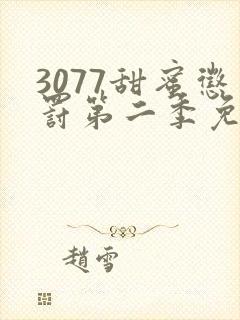 3077甜蜜懲
罰第二季免
趙雪